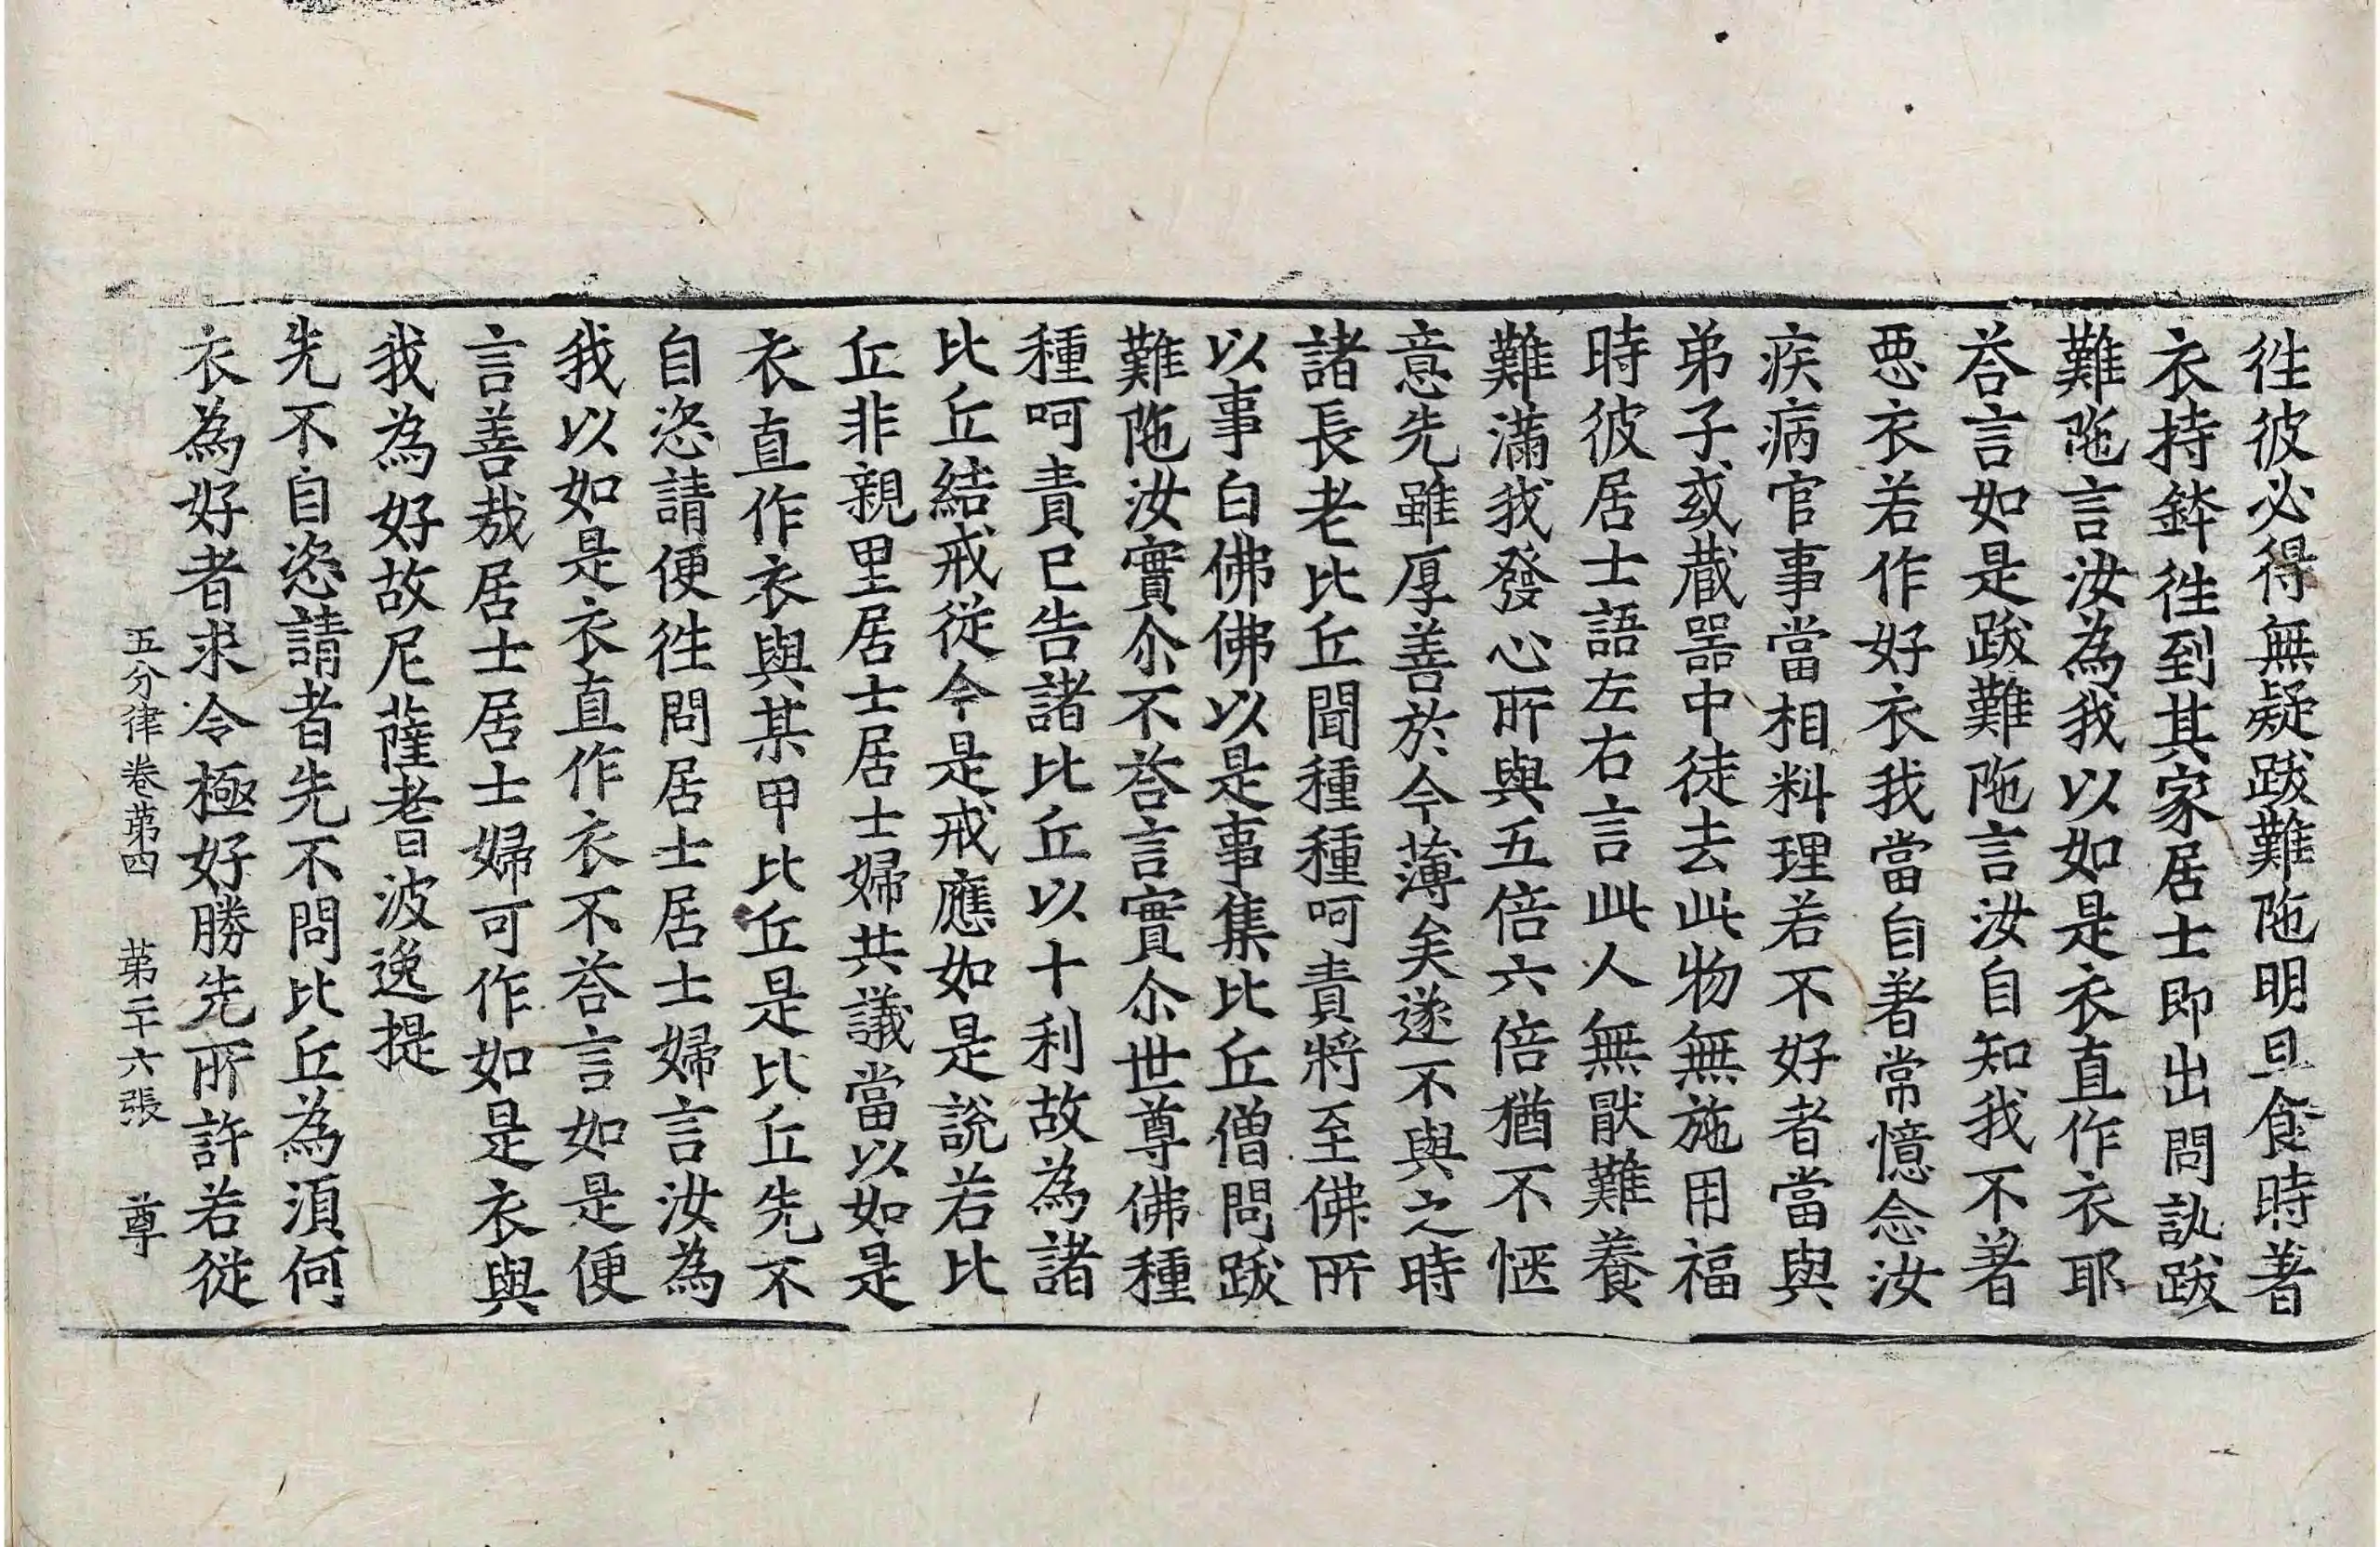 徃彼必得無疑跋難陁明旦食時著
衣持鉢徃到其家居士即出問訊跋
難陁言汝為我以如是衣直作衣耶
荅言如是跋難陁言汝自知我不著
惡衣若作好衣我當自著常憶念汝
疾病官事當相料理若不好者當與
弟子或蔵噐中徒去此物無施用福
時彼居士語左右言此人無猒難養
難滿我發心所與五倍六倍猶不惬
意先雖厚善於今薄矣遂不與之時
諸長老比丘聞種種呵責將至佛所
以事白佛佛以是事集比丘僧問跋
難陁汝實尒不荅言實尒世尊佛種
種呵責已告諸比丘以十利故為諸
比丘結戒從今是戒應如是說若比
丘非親里居士居士婦共議當以如是
衣直作衣與某甲比丘是比丘先不
自恣請便徃問居士居士婦言汝為
我以如是衣直作衣不荅言如是便
言善㢤居士居士婦可作如是衣與
我為好故尼薩耆波逸提
先不自恣請者先不問比丘為湏何
衣為好者求令極好勝先所許若從
五分律卷苐四 苐二十六張 尊